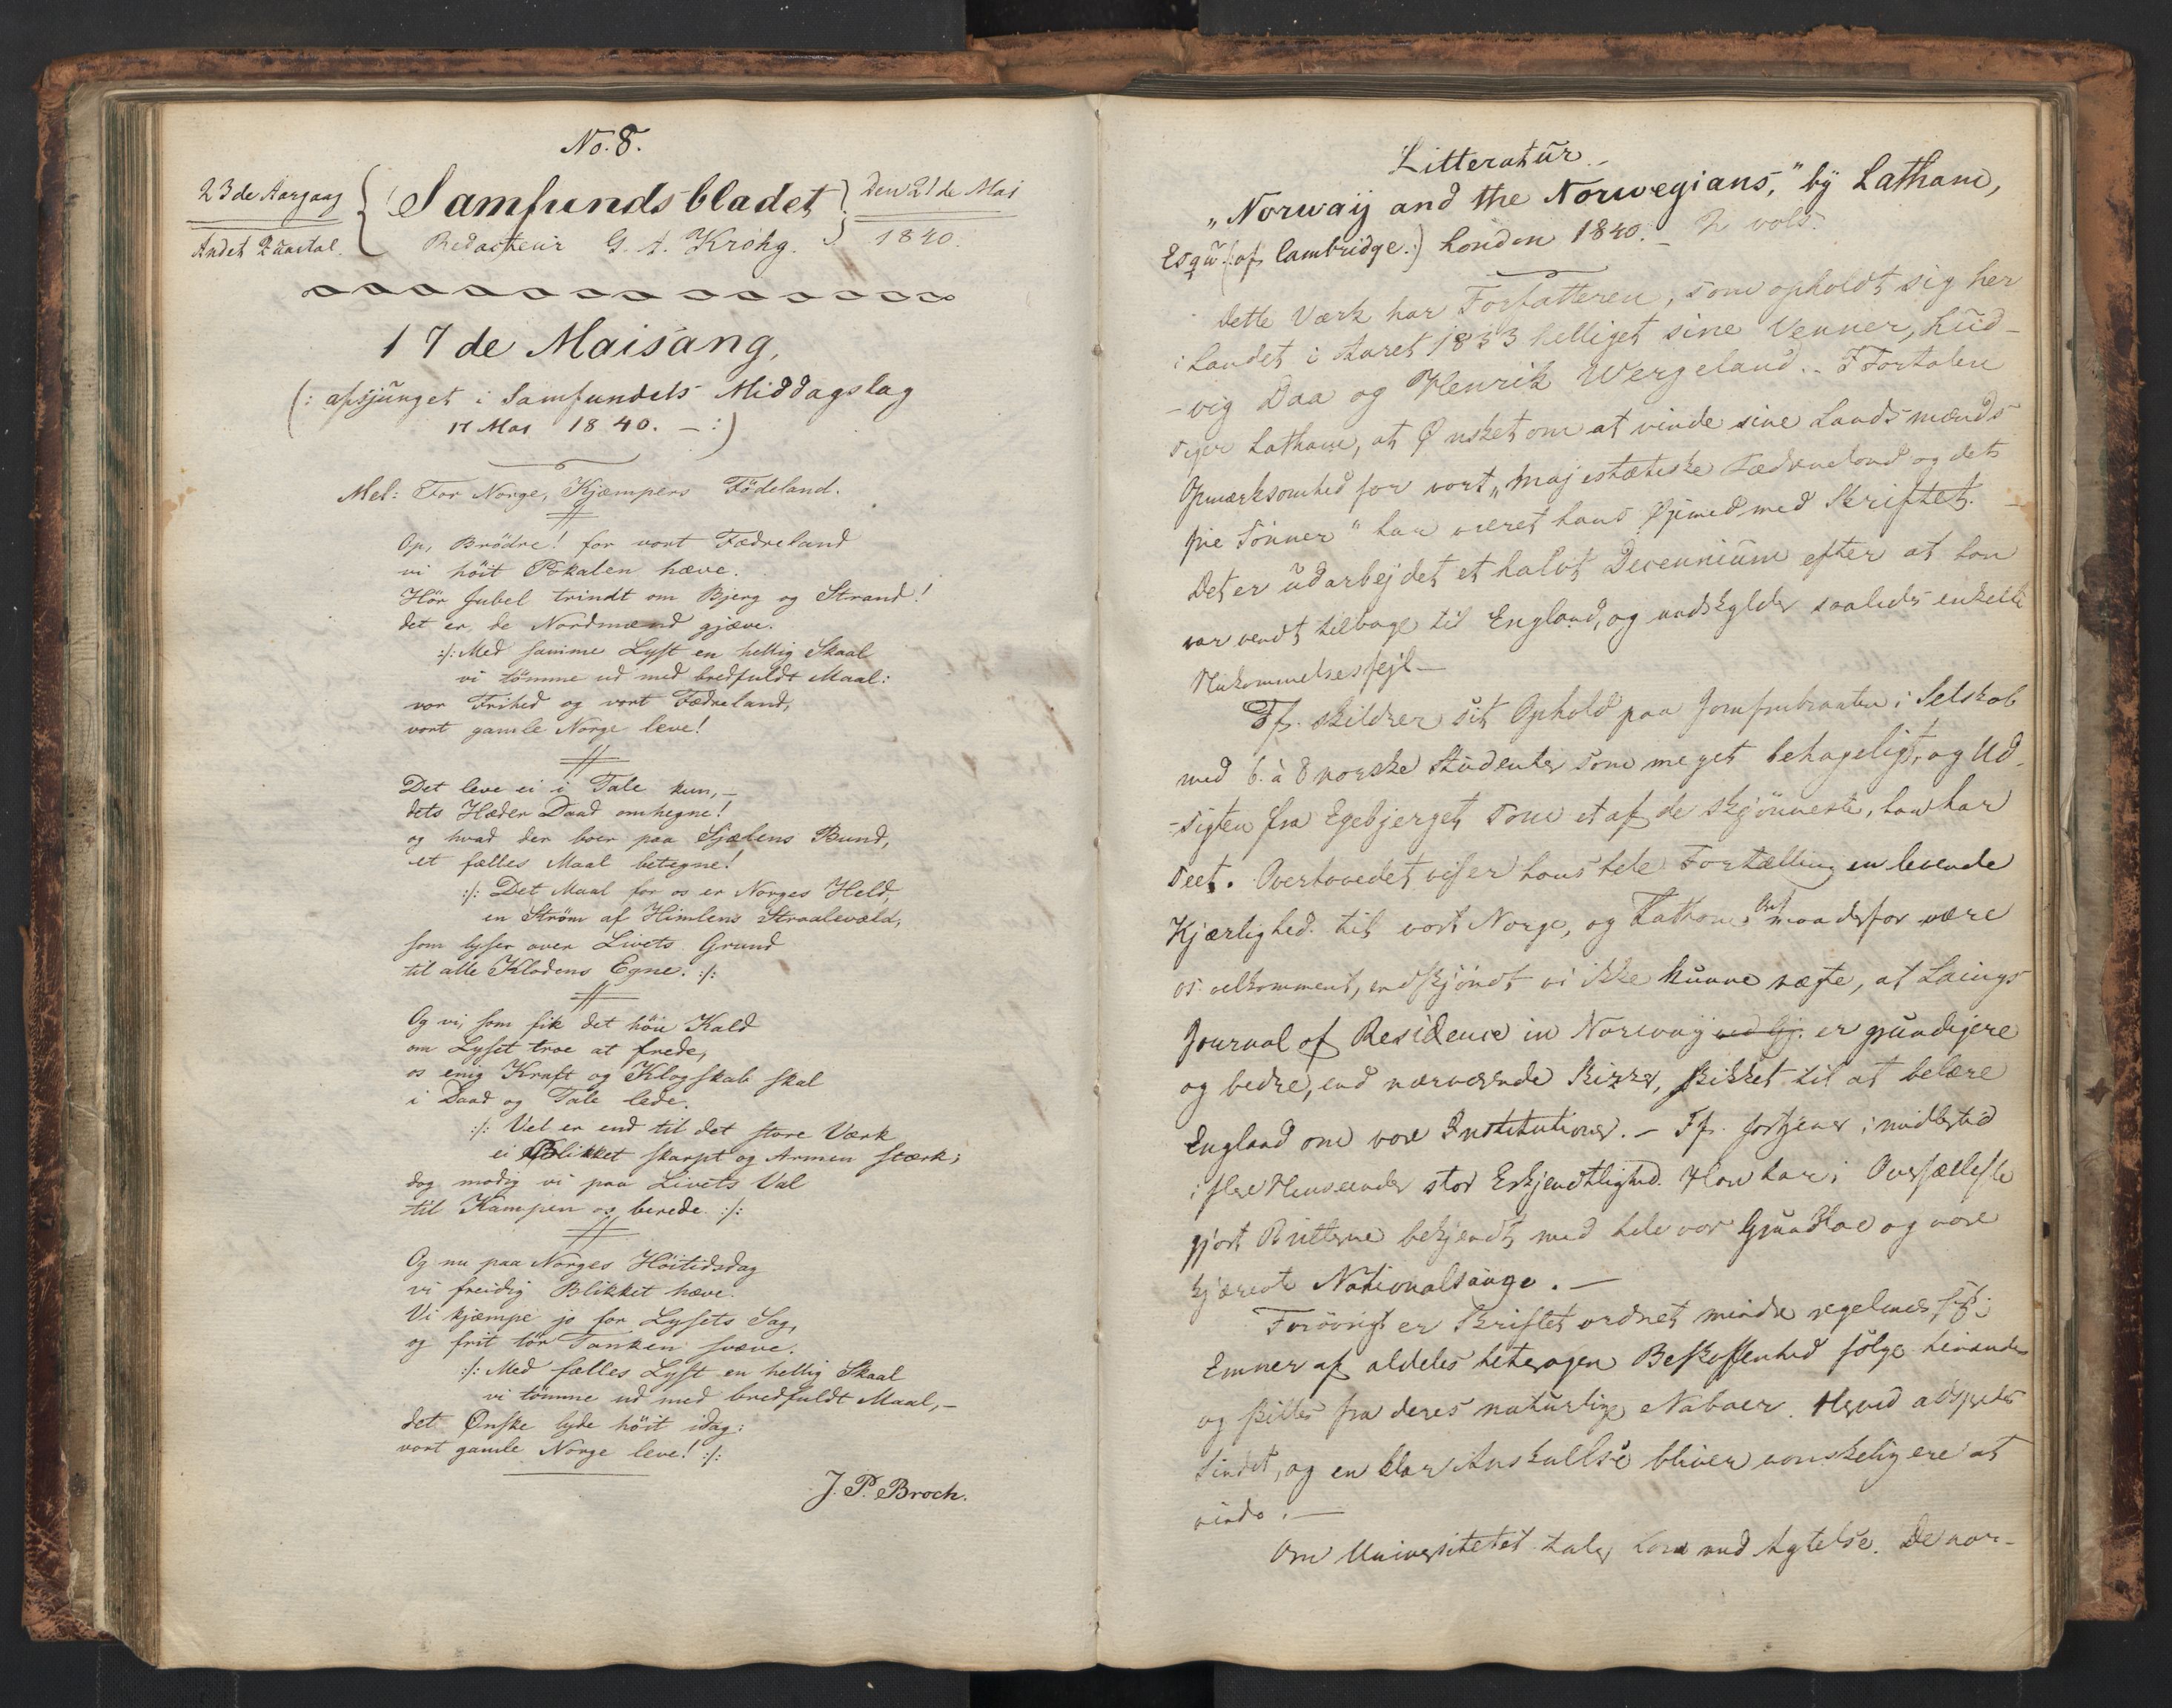 No. 8.
23de Aargang
Andet Quartal.
Samfundsbladet
Redacteur G. A. Krohg.
Den 21de Mai
1840.
17de Maisang,
(: afsjunget i Samfundets Middagslag
17 Mai 1840. – :)
Mel: For Norge, Kjæmpers Födeland.
Op, Brödre! for vort Fædreland
vi höit Pokalen hæve.
Hör Jubel trindt om Bjerg og Strand!
det er de Nordmænd gjæve.
:/: Med samme Lyst en hellig Skaal
vi tömme ud med bredfuldt Maal:
vor Frihed og vort Fædreland,
vort gamle Norge leve!
Det leve ei i Tale kun, –
dets Hæder Daad omhegne!
og hvad der boer paa Sjælens Bund,
et fælles Maal betegne!
:/: Det Maal for os er Norges Held,
en Ström af Himlens Straalevæld,
som lyser over Livets Grund
til alle Klodens Egne. :/:
Og vi, som fik det höie Kald
om Lyset troe at frede,
os enig Kraft og Klogskab skal
i Daad og Tale lede.
:/: Vel er end til det store Værk
ei Blikket skarpt og Armen stærk;
dog modig vi paa Livets Val
til Kampen os berede. :/:
Og nu paa Norges Höitidsdag
vi freidig Blikket hæve.
Vi kjæmpe jo for Lysets Sag,
og frit tör Tanken svæve.
:/: Med fælles Lyst en hellig Skaal
vi tömme ud med bredfuldt Maal, –
det Ønske lyde höit idag:
vort gamle Norge leve! :/:
J. P. Broch.
Litteratur. –
„Norway and the Norwegians," by Latham,
Esqu (: of Cambridge.) London 1840. – 2 vols.
Dette Værk har Forfatteren, som opholdt sig her
i Landet i Aaret 1833 helliget sine Venner, Lud-
-vig Daa og Henrik Wergeland. – I Fortalen
siger Latham, at Ønsket om at vinde sine Landsmænds
Opmærksomhed for vort „majestætiske Fædreneland og dets
frie Sönner" har været hans Øjemed med Skriftet. –
Det er udarbejdet et halvt Decennium efter at han
var vendt tilbage til England, og undskylder saaledes enkelte
Hukommelsesfejl –
Ff. skildrer sit Ophold paa Jomfrubraaten i Selskab
med 6. à 8 norske Studenter som meget behageligt, og Ud-
-sigten fra Egebjerget som et af de skjönneste, han har
seet. Overhovedet viser hans hele Fortælling en levende
Kjærlighed til vort Norge, og Lathams maa derfor være
os velkomment, endskjöndt vi ikke kunne nægte, at Laings
Journal of Residence in Norway er grundigere
og bedre, end nærværende Skizze, skikket til at belære
England om vore Institutioner. – Ff. fortjener imidlertid
i flere Henseender stor Erkjendtlighed. Han har i Oversættelse
gjort Britterne bekjendt med hele vor Grundlov og vore
kjæreste Nationalsange. –
Forövrigt er Skriftet ordnet mindre regelmæssigt;
Emner af aldeles heterogen Beskaffenhed fölge hinanden
og skilles fra deres naturlige Naboer. Herved adspredes
Sindet, og en klar Anskuelse bliver vanskeligere at
vinde. –
Om Universitetet taler han med Agtelse. De nor-